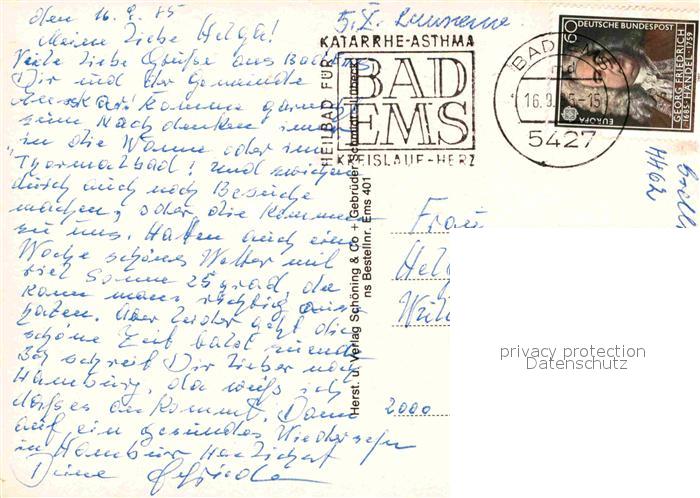 den 16.9.85
Meine liebe Helga!
Viele liebe Grüße aus Bad Ems
Dir und der Gemeinde
komme gar nicht
zum Nachdenken immer
in die Wanne oder ins
Tyermalbad! und zwischen
durch auch noch Besuche
machen, oder die kommen
zu uns. Hatten auch eine
Woche schönes Wetter mit
viel Sonne 25 grad, da
kann man richtig
Aber leider geht die
schöne Zeit bald zuende
schreib Dir lieber nach
Hamburg, da weiß ich
dass es ankommt. Dann
auf ein gesundes Wiedersehn
in Hamburg Herzlichst
Deine Elfriede
5.X.
HEILBAD FÜR
KATARRHE-ASTHMA
BAD
EMS
KREISLAUF-HERZ
BAD EMS
16.9.85-15
5427
60
DEUTSCHE BUNDESPOST
GEORG FRIEDRICH
HÄNDEL
1685-1759
EUROPA
Herst. u. Verlag Schöning & Co + Gebrüder Schmidt - Lübeck
ns Bestellnr. Ems 401
HH 62
Frau
Hel
2000
privacy protection
Datenschutz